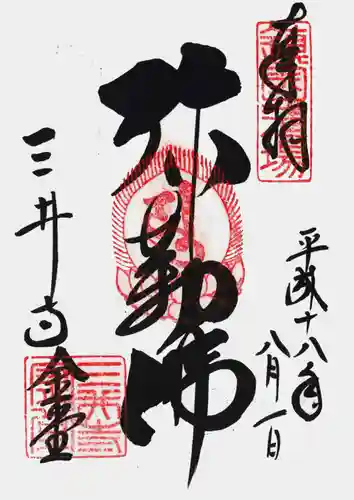 奉拝
平成十八年
八月一日
弥勒佛
三井寺
金堂